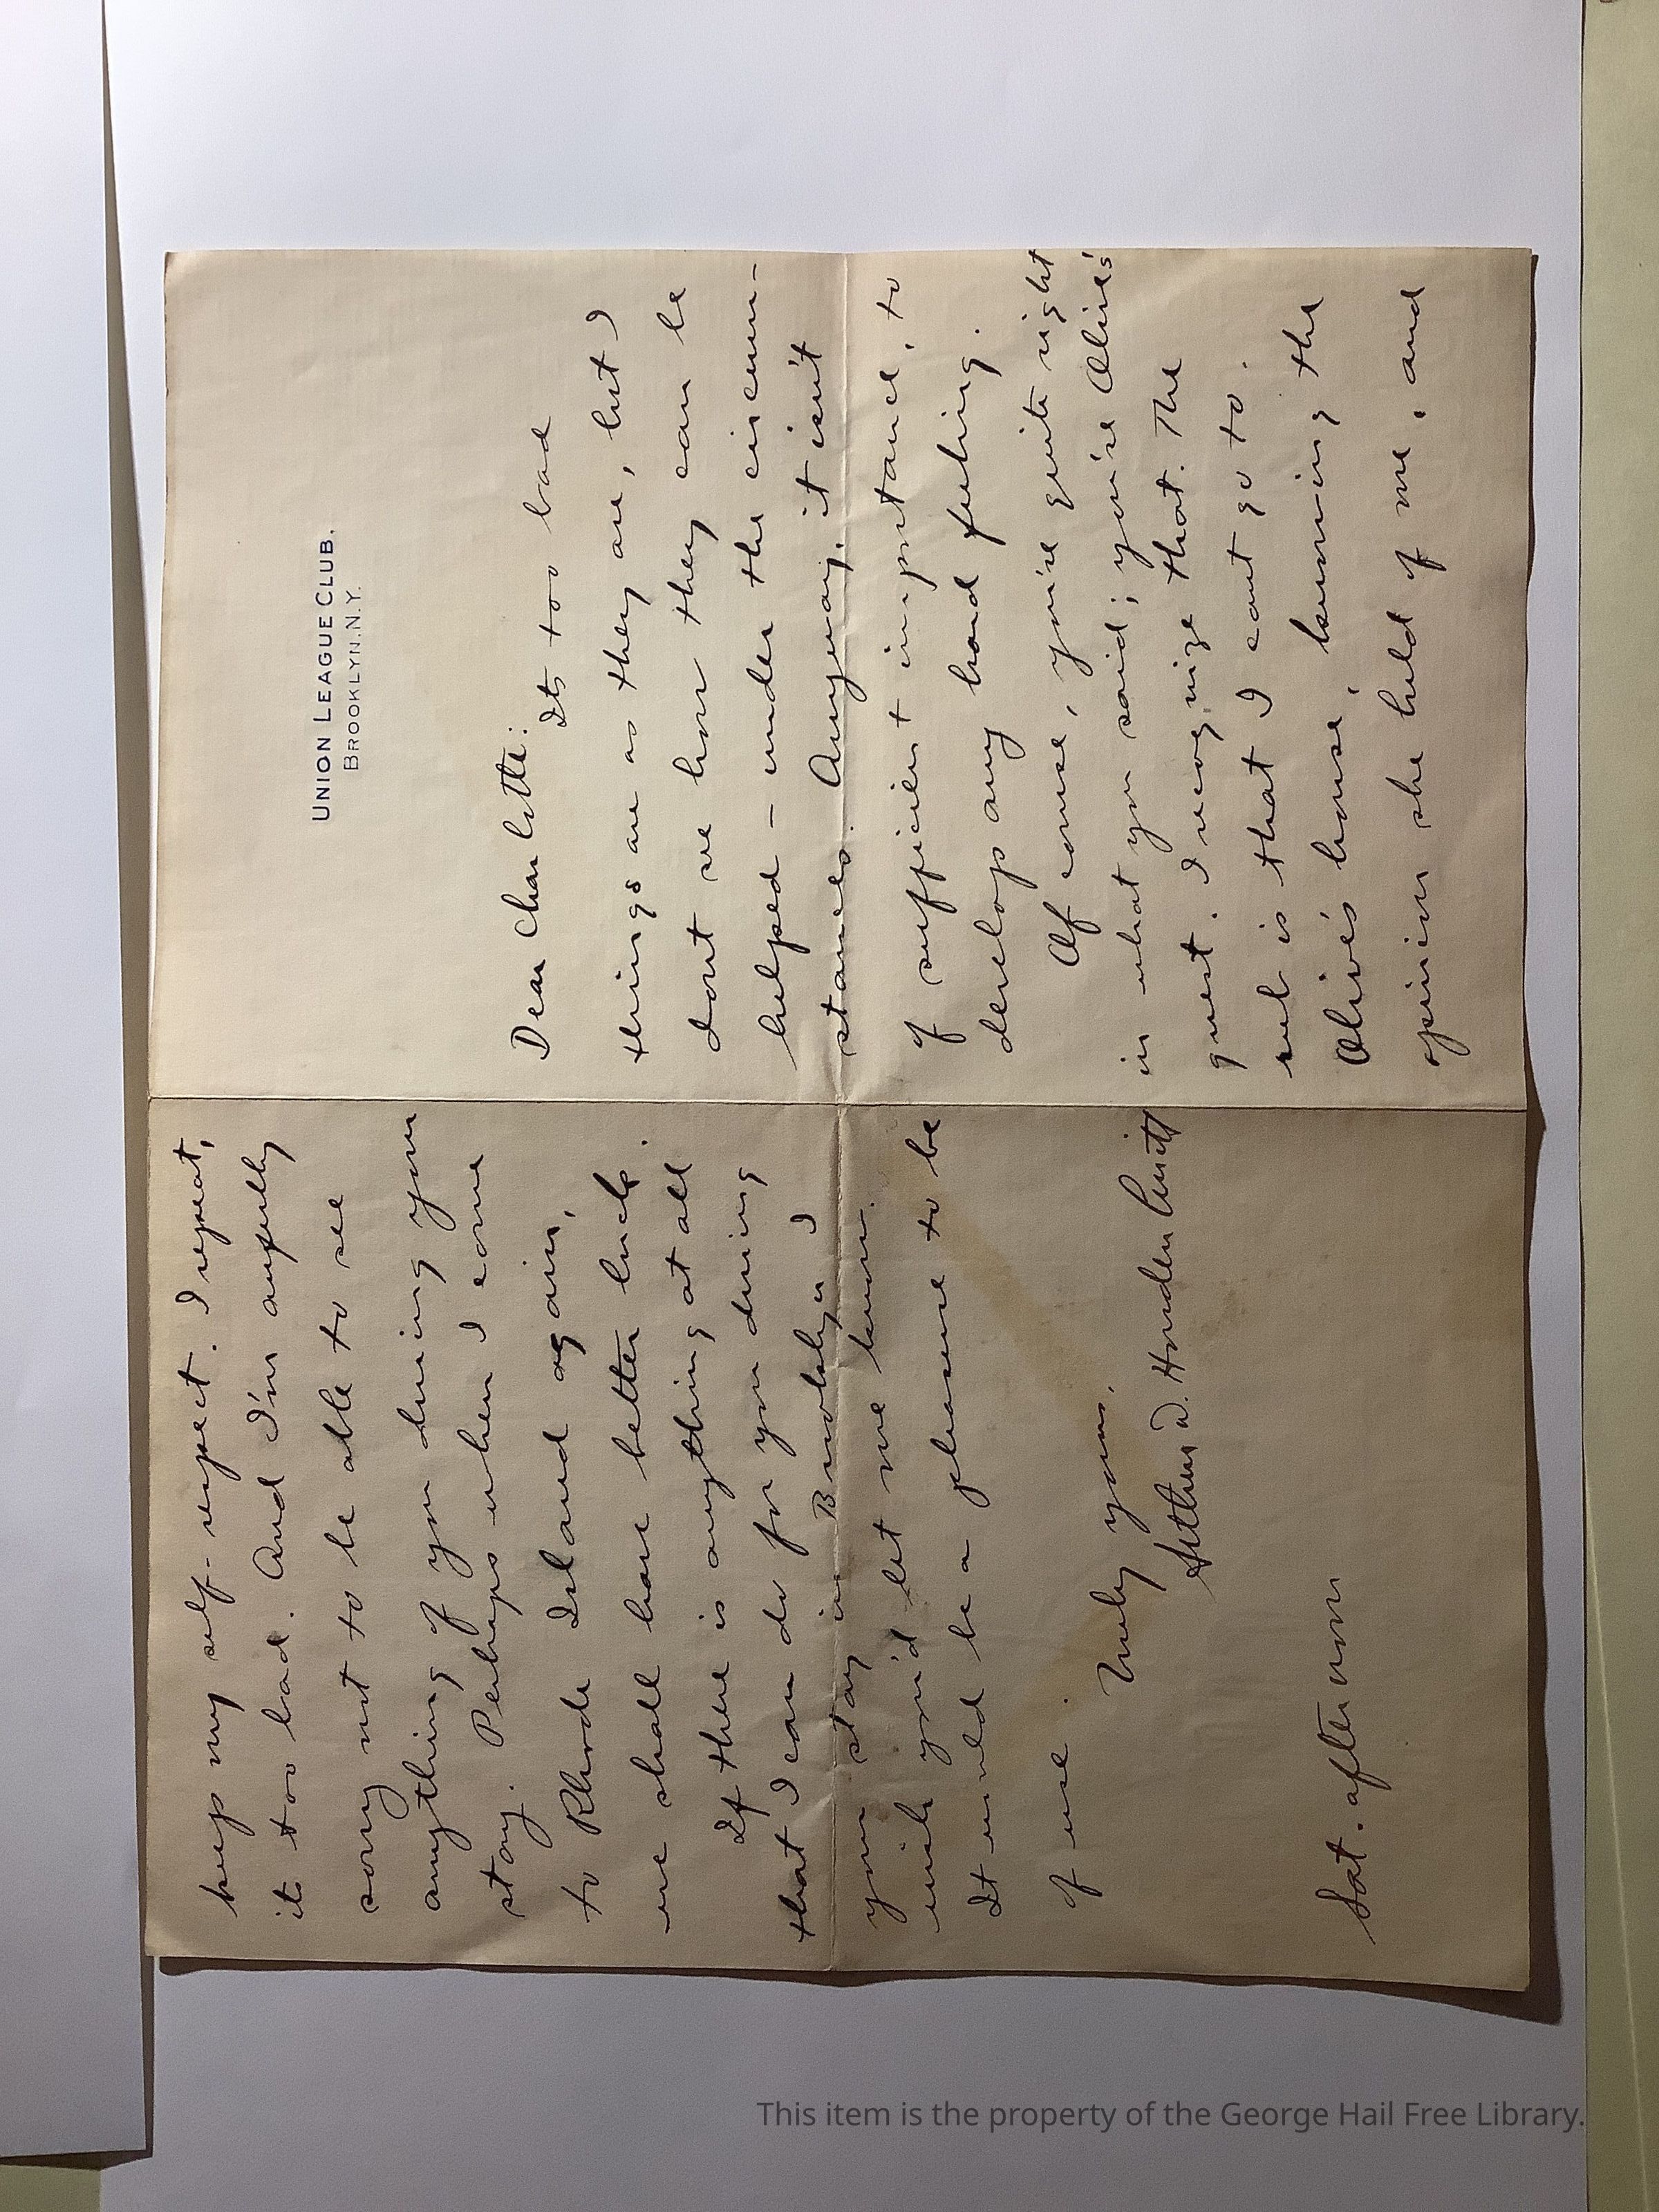 UNION LEAGUE CLUB.
BROOKLYN. N.Y.
Dear Charlotte:
Its too bad
things are as they are, but I
dont see how they can be
helped – under the circum-
stances. Anyway, it isn't
of sufficient importance, to
develop any hard feeling.
Of course, you're quite right
in what you said; you're Olive's
guest. I recognize that. The
rub is that I cant go to
Olive's house, knowing the
opinion she held of me, and
keep my self-respect. I repeat,
its too bad. And I'm awfully
sorry not to be able to see
anything of you during your
stay. Perhaps when I come
to Rhode Island again,
we shall have better luck.
If there is anything at all
that I can do for you during
your stay in Brooklyn I
wish you'd let me know.
It would be a pleasure to be
of use.
Truly yours,
Arthur D. Howden
Sat. afternoon
This item is the property of the George Hail Free Library.